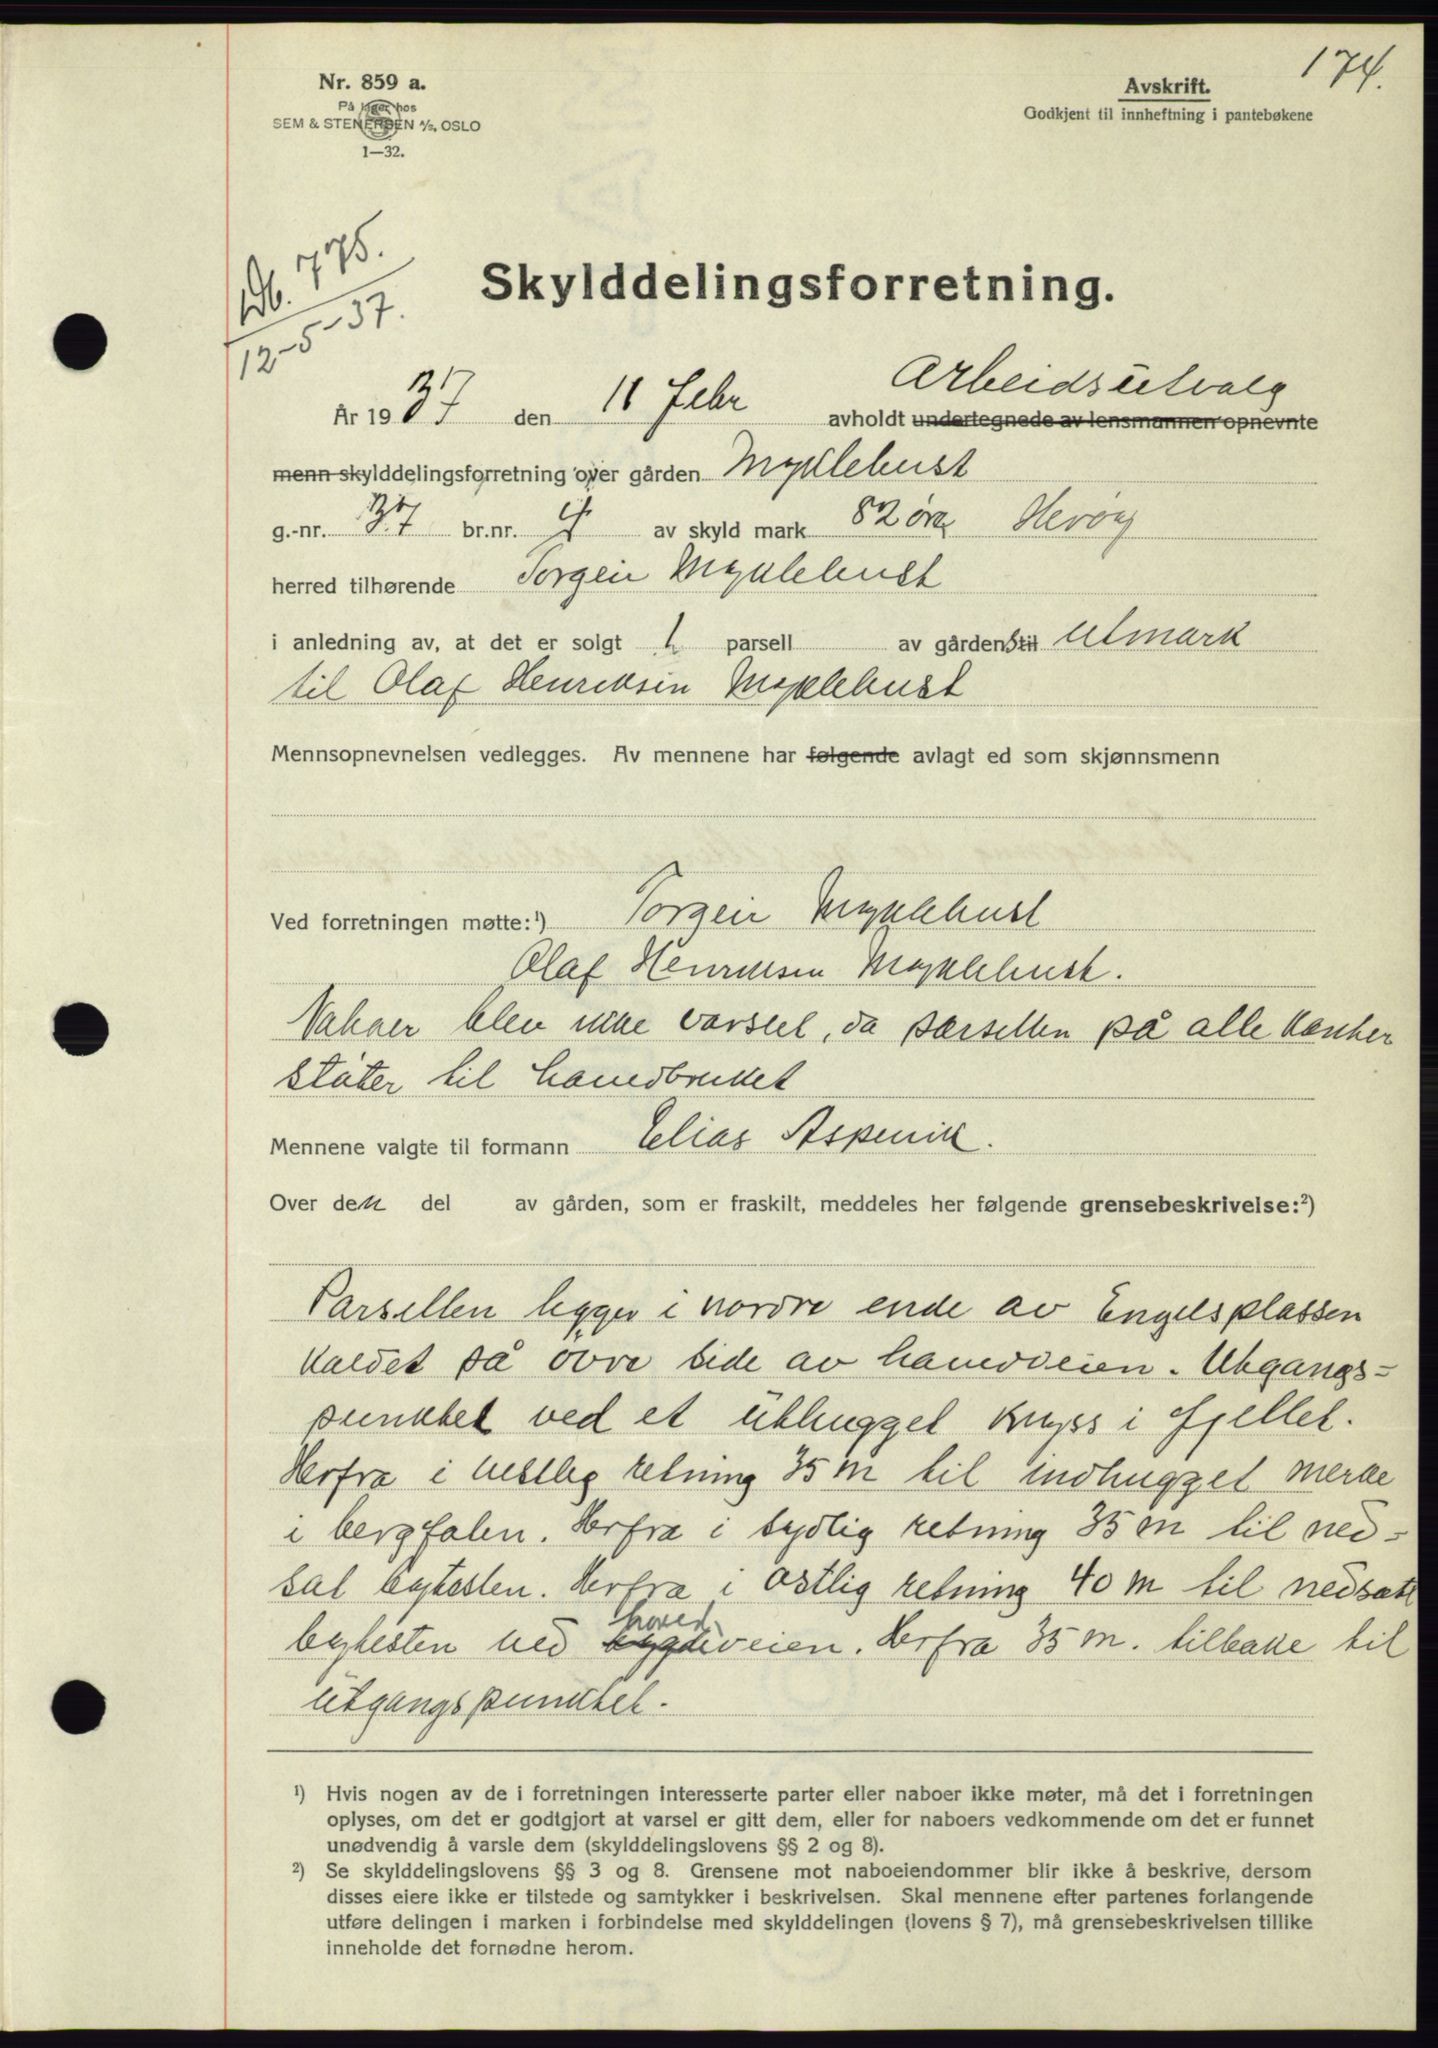 174.
Nr. 859 a.
På lager hos
SEM & STENERSEN A/S, OSLO
1—32.
Avskrift.
Godkjent til innheftning i pantebøkene
Db. 775.
12-5-37.
Skylddelingsforretning.
Arbeidsutvalg
År 1937 den 11 Febr avholdt undertegnede av lensmannen opnevnte
menn skylddelingsforretning over gården Myklebust
g.-nr. 37 br.nr. 4 av skyld mark 82 øre Herøy
herred tilhørende Torgeir Myklebust
i anledning av, at det er solgt 1 parsell av gårdens til Utmark
til Olaf Henriksen Myklebust
Mennsopnevnelsen vedlegges. Av mennene har følgende avlagt ed som skjønnsmenn
Ved forretningen møtte:¹) Torgeir Myklebust
Olaf Henriksen Myklebust.
Naboer blev ikke varslet, da parsellen på alle kanter
støter til hovedbruket
Mennene valgte til formann Elias Aspevik.
Over den del av gården, som er fraskilt, meddeles her følgende grensebeskrivelse:²)
Parsellen ligger i nordre ende av Engelsplassen
kaldet på övre side av hovedveien. Utgangs-
punktet ved et uthugget kryss i fjellet.
Herfra i vestlig retning 35 m til indhugget merke
i bergfalen. Herfra i sydlig retning 35 m til ned-
sat bytesten. Herfra i östlig retning 40 m til nedsatt
hoved
bytesten ved bygdeveien. Herfra 35 m. tilbake til
utgangspunktet.
¹) Hvis nogen av de i forretningen interesserte parter eller naboer ikke møter, må det i forretningen
oplyses, om det er godtgjort at varsel er gitt dem, eller for naboers vedkommende om det er funnet
unødvendig å varsle dem (skylddelingslovens §§ 2 og 8).
²) Se skylddelingslovens §§ 3 og 8. Grensene mot naboeiendommer blir ikke å beskrive, dersom
disses eiere ikke er tilstede og samtykker i beskrivelsen. Skal mennene efter partenes forlangende
utføre delingen i marken i forbindelse med skylddelingen (lovens § 7), må grensebeskrivelsen tillike
inneholde det fornødne herom.